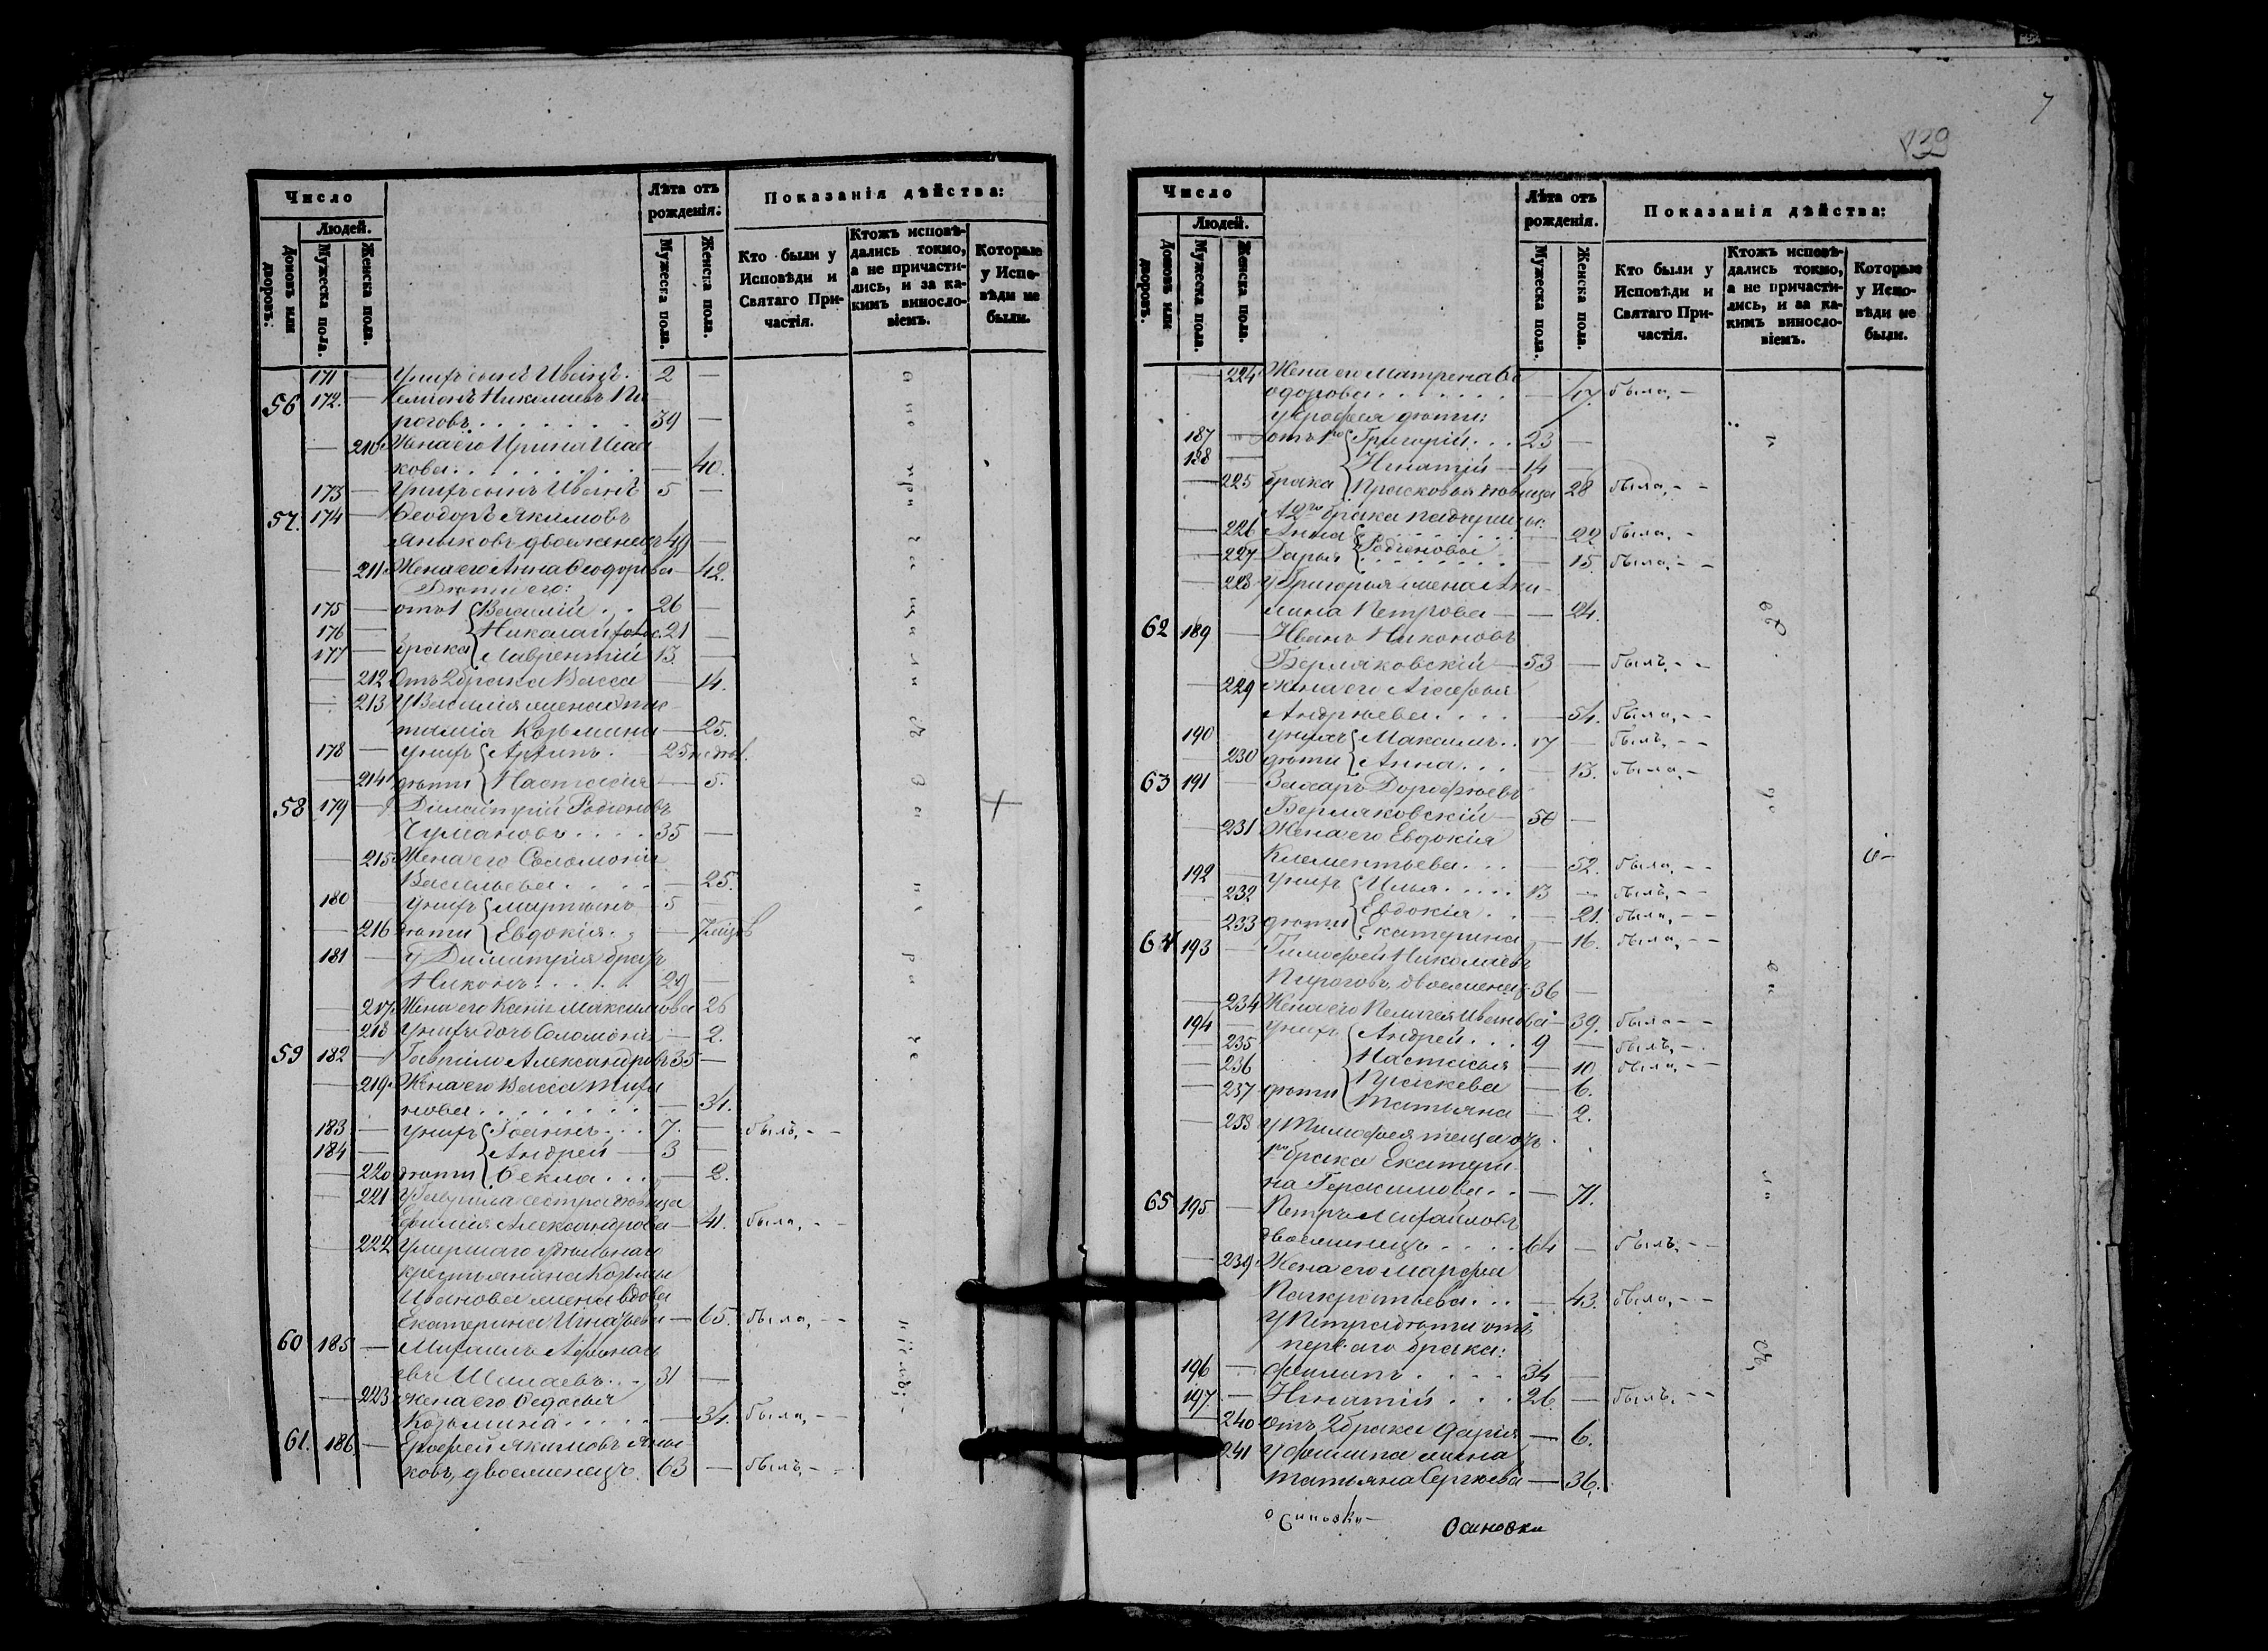 7
139
Число
Лѣта отъ рожденія.
Показанія дѣйства:
Людей.
Домовъ или дворовъ.
Мужеска пола.
Женска пола.
Мужеска пола.
Женска пола.
Кто были у Исповѣди и Святаго Причастія.
Ктожъ исповѣдались токмо, а не причастились, и за какимъ винословіемъ.
Которые у Исповѣди не были.
171 — Унихъ сынъ Иванъ. 2 —
56 172. — Николаевъ Пи
роговъ. . . . . . . . 39 —
— 210 Жена его Ирина Исаа
кова. . . . . . . . . — 40.
173 — Унихъ сынъ Иванъ 5 —
57. 174 — Ѳеодоръ Якимовъ
двоеженецъ 49 —
— 211 Жена его Анна Ѳеодорова — 42.
Дѣти его:
175 — отъ 1 Василій . . 26 —
176 — Николай 21 —
177 — брака Лаврентій 13. —
— 212 Отъ 2 брака Васса — 14.
213 У Василія жена
Козьмина — 25.
178 — Унихъ 25
— 214 дѣти Настасія — 5.
58 179 — Димитрій Родіоновъ
Чумаковъ . . . . 35 —
— 215 Жена его Соломонія
Васильева . . . . — 25.
180 — Унихъ Мартинъ — 5
— 216 дѣти Евдокія. — 7
181 — У Димитрія братъ
Никонъ. . . . . . 29 —
— 217 Жена его Ксенія Максимова 26
— 218 Унихъ дочь Соломонія — 2.
59 182 — Гаврило Александровъ 35 —
— 219 Жена его Васса Тихо
нова . . . . . . . . — 34.
183 — Унихъ Іоаннъ. . . 7. — былъ, - -
184 — Андрей — 3 —
— 220 дѣти Ѳекла . . . — 2.
— 221 У Гаврила сестра дѣвица
Ефимія Александрова — 41. была, - -
— 222 Умершаго удѣльнаго
крестьянина Козьмы
Иванова жена вдова
Екатерина Игнатьева — 65. была, - -
60 185 — Михаилъ Афанась
евъ Шишаевъ. . . 31 —
— 223 жена его Ѳедосья
Козьмина . . . . . — 34. была, - -
61. 186. — Ерофей Якимовъ
ковъ, двоеженецъ. 63 — былъ, - -
Число
Лѣта отъ рожденія.
Показанія дѣйства:
Людей.
Домовъ или дворовъ.
Мужеска пола.
Женска пола.
Мужеска пола.
Женска пола.
Кто были у Исповѣди и Святаго Причастія.
Ктожъ исповѣдались токмо, а не причастились, и за какимъ винословіемъ.
Которые у Исповѣди не были.
— 224 Жена его Матрена Ѳе
одорова . . . . . . . — 47. была, -
У Ерофея дѣти:
187 — отъ 1го Григорій . . . 23 —
188 — Игнатій — 14 —
— 225 брака Прасковья дѣвица 28 была, - -
А 2го брака падчерицы:
— 226 Анна Родіоновы — 22. была, -
— 227 Дарья — 15. была, - -
— 228 У Григорья жена Аки-
лина Петрова — — 24.
62 189 — Иванъ Никоновъ
Бермяковскій — 53 — былъ, - -
— 229 жена его Агафья
Андрѣева. . . . — 54. была, - -
190 Унихъ Максимъ. . 17 — былъ, - -
— 230 дѣти Анна. . . — 13. была, -
63 191 — Захаръ Дорофѣевъ
Бермяковскій — 50 —
— 231 Жена его Евдокія
Клементьева. . . — 52. была, - -
192 — Унихъ Илья. . . . . 13 — былъ, - -
232 Евдокія . . — 21. была, - -
— 233 дѣти Екатерина — 16. была, - -
64 193 — Тимофей Николаевъ
Пироговъ, двоеженецъ 36 —
— 234 Жена его Пелагея Иванова — 39. была - -
194 — Унихъ Андрей. . . 9 — былъ, - -
— 235 Настасья — 10 была, - -
— 236 Праскева — 6.
— 237 дѣти Татьяна — 2.
— 238 У Тимофея теща отъ
1го брака Екатери
на Герасимова. . — 71.
65 195 — Петръ Михайловъ
двоеженецъ . . . . 64 — былъ, - -
— 239 Жена его Марфа
Панкратьева. . . — 43. была, - -
У Петра дѣти отъ
перваго брака:
196 — Филипъ . . . . 34 —
197. — Игнатій . . . 26. — былъ, - -
— 240 Отъ 2 брака Дарія — 6.
241 У Филипа жена
Татьяна Сергѣева — 36.
Осиновки
Осиновки